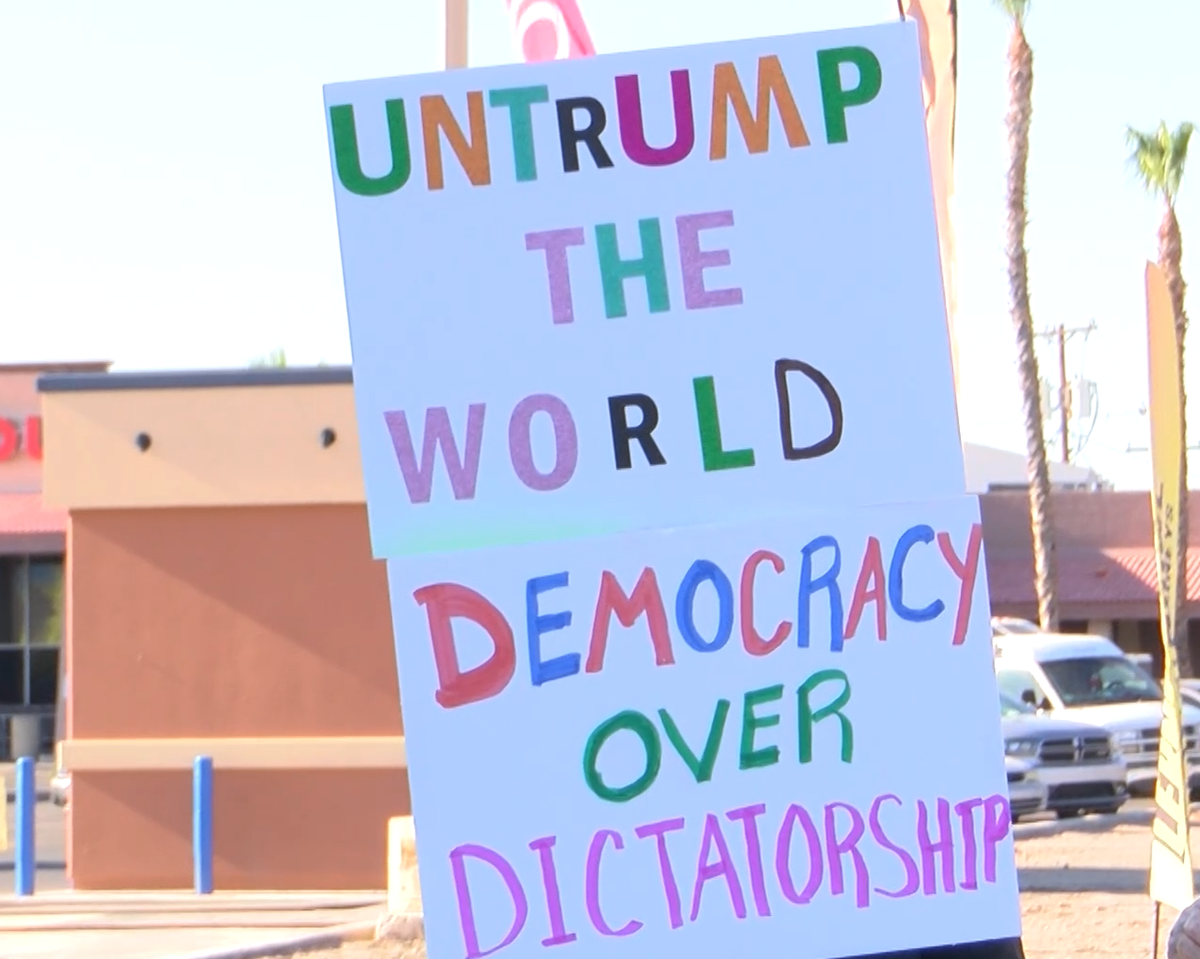 UNTRUMP
THE
WORLD
DEMOCRACY
OVER
DICTATORSHIP